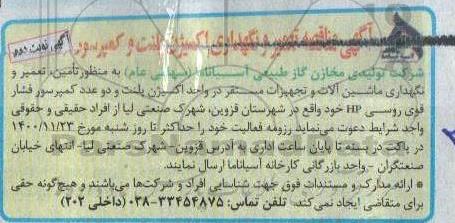 آگهی مناقصه تعمیر و نگهداری اکسیژن پلنت و کمپرسور
آگهی نوبت دوم
شرکت تولیدی مخازن گاز طبیعی آسیاناما (سهامی عام) به منظور تأمین، تعمیر و
نگهداری ماشین آلات و تجهیزات مستقر در واحد اکسیژن پلنت و دو عدد کمپرسور فشار
قوی روسی HP خود واقع در شهرستان قزوین، شهرک صنعتی لیا از افراد حقیقی و حقوقی
واجد شرایط دعوت می‌نماید رزومه فعالیت خود را حداکثر تا روز شنبه مورخ 1400/11/23
در پاکت در بسته تا پایان ساعت اداری به آدرس قزوین- شهرک صنعتی لیا- انتهای خیابان
صنعتگران -واحد بازرگانی کارخانه آسیاناما ارسال نمایند.
* ارائه مدارک و مستندات فوق جهت شناسایی افراد و شرکت‌ها می‌باشند و هیچ‌گونه حقی
برای متقاضی ایجاد نمی‌کند. تلفن تماس: ۳۳۴۵۴۸۷۵-۰۳۸ (داخلی ۲۰۲)